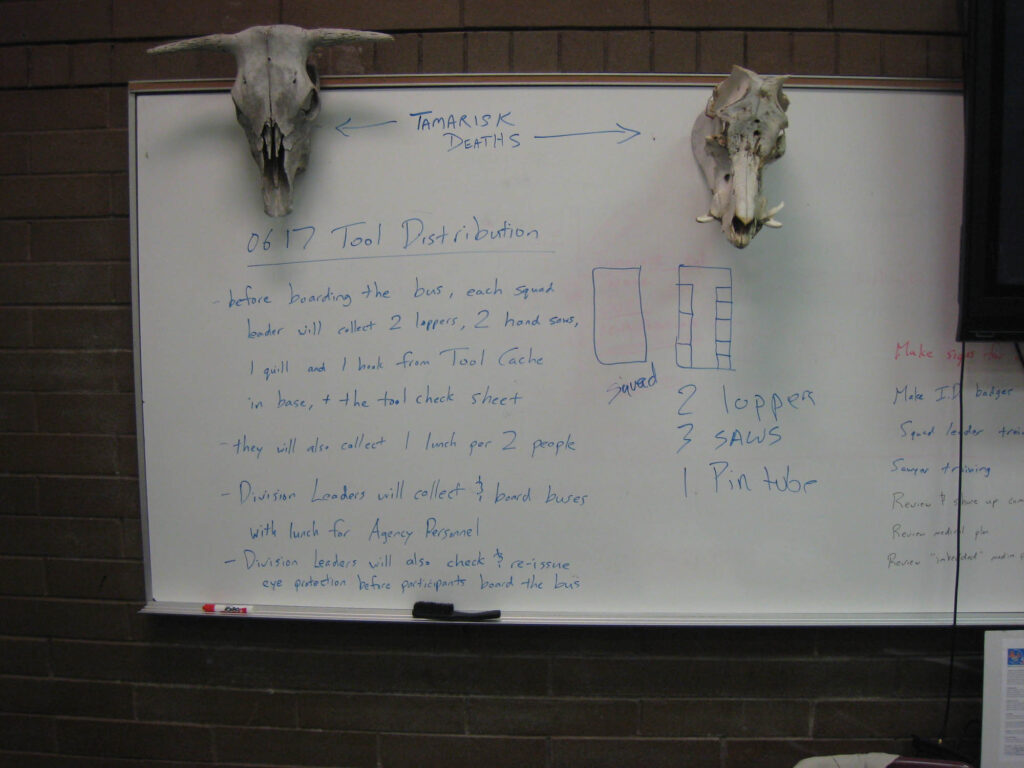 TAMARISK
DEATHS
0617 Tool Distribution
- before boarding the bus, each squad
leader will collect 2 loppers, 2 hand saws,
1 quill and 1 book from Tool Cache
in base, + the tool check sheet
- they will also collect 1 lunch per 2 people
- Division Leaders will collect & board buses
with lunch for Agency Personnel
- Division Leaders will also check & re-issue
eye protection before participants board the bus
squad
2 lopper
3 SAWS
1. Pin tube
Make signs for
Make I.D badges
Squad leader train
Sawyer training
Review & up
Review medical plan
Review "imbedded"